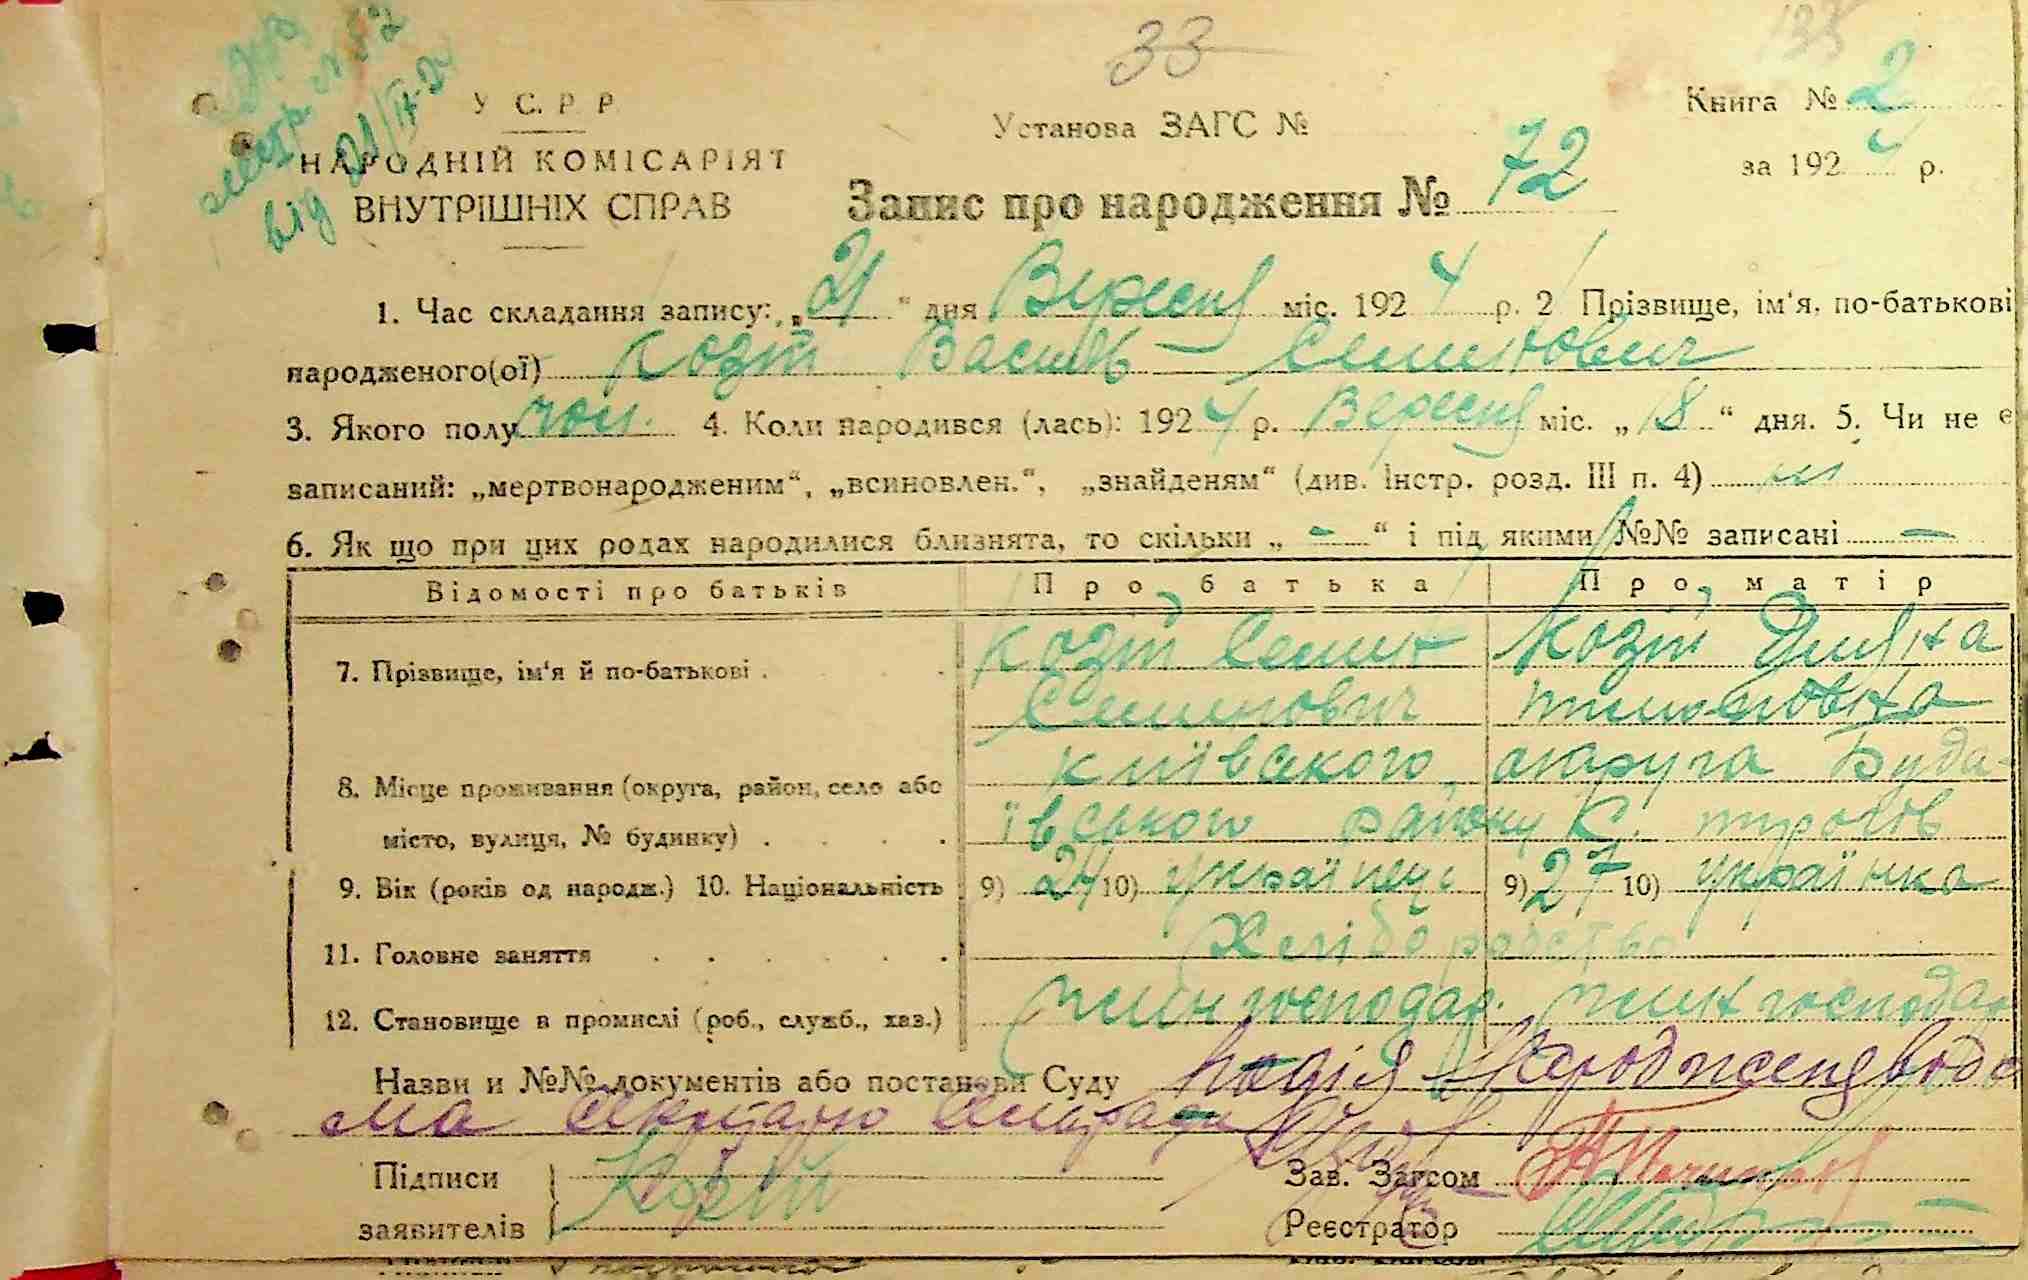 33
У С. Р. Р.
НАРОДНІЙ КОМІСАРІЯТ
ВНУТРІШНІХ СПРАВ
Установа ЗАГС №
Книга № 2
за 1924 р.
Запис про народження № 72
1. Час складання запису: „21“ дня Вересня міс. 1924 р. 2 Прізвище, ім'я, по-батькові
народженого(ої) Козій Василь Семенович
3. Якого полу чол. 4. Коли народився (лась): 1924 р. Вересня міс. „18“ дня. 5. Чи не є
записаний: „мертвонародженим“, „всиновлен.“, „знайденям“ (див. Інстр. розд. III п. 4) ні
6. Як що при цих родах народилися близнята, то скільки „ - “ і під якими №№ записані —
Відомості про батьків Про батька Про матір
7. Прізвище, ім'я й по-батькові . Козій Семен Козій
Семенович
8. Місце проживання (округа, район, село або Київського округа Буда-
місто, вулиця, № будинку) . . . . ївського району С.
9. Вік (років од народж.) 10. Національність 9) 24 10) українец 9) 27 10) українка
11. Головне заняття . . . . . . Хліборобство
12. Становище в промислі (роб., служб., хаз.) член господар. член господар
Назви и №№ документів або постанови Суду подія народження відо
ма секретарю Сільради
Підписи
заявителів
Козій
Зав. Загсом
Реєстратор